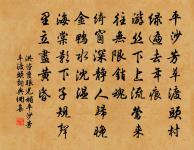 平沙芳草渡頭村
綠遍去年痕游
絲下上流鶯來
往無限銷魂
綺窗深靜人歸晚
金鴨水沉溫
海棠影下子規聲
裏立盡黃昏
洪咨夔眼兒媚平沙芳
草渡頭村詞典網集